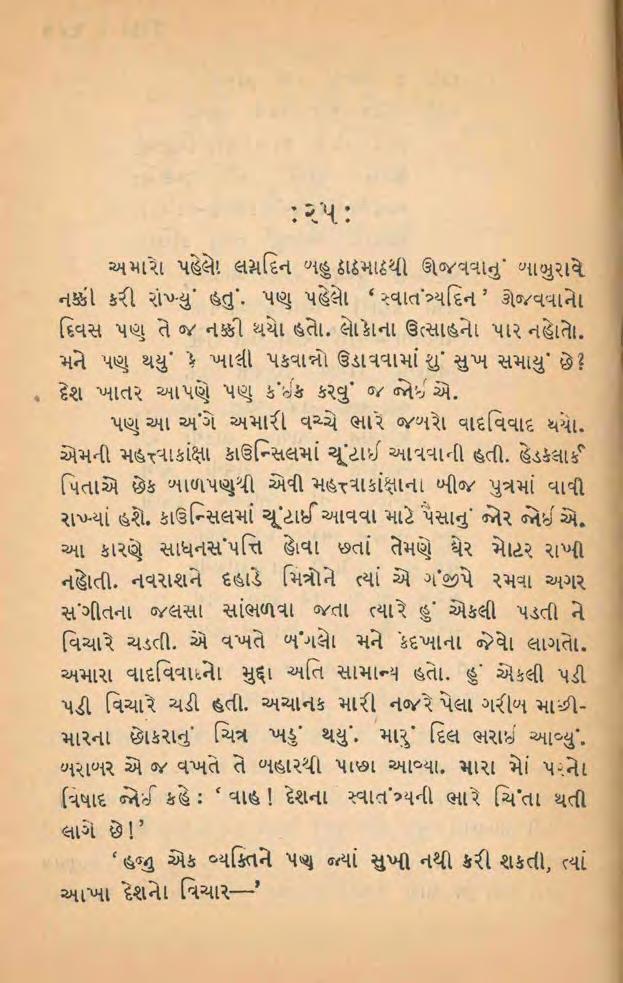 :૨૫:
અમારો પહેલો લગ્નદિન બહુ ઠાઠમાઠથી ઊજવવાનું બાબુરાવે
નક્કી કરી રાંખ્યું હતું. પણ પહેલો ‘સ્વાતંત્ર્યદિન’ ઊજવવાનો
દિવસ પણ તે જ નક્કી થયો હતો. લોકોના ઉત્સાહનો પાર નહોતો.
મને પણ થયું કે ખાલી પકવાન્નો ઉડાવવામાં શું સુખ સમાયું છે?
દેશ ખાતર આપણે પણ કંઈક કરવું જ જોઈએ.
પણ આ અંગે અમારી વચ્ચે ભારે જબરો વાદવિવાદ થયો.
એમની મહત્ત્વાકાંક્ષા કાઉન્સિલમાં ચૂંટાઈ આવવાની હતી. હેડક્લાર્ક
પિતાએ છેક બાળપણથી એવી મહત્ત્વાકાંક્ષાના બીજ પુત્રમાં વાવી
રાખ્યાં હશે. કાઉન્સિલમાં ચૂંટાઈ આવવા માટે પૈસાનું જોર જોઈએ.
આ કારણે સાધનસંપત્તિ હોવા છતાં તેમણે ઘેર મોટર રાખી
નહોતી. નવરાશને દહાડે મિત્રોને ત્યાં એ ગંજીપે રમવા અગર
સંગીતના જલસા સાંભળવા જતા ત્યારે હું એકલી પડતી ને
વિચારે ચડતી. એ વખતે બંગલો મને કેદખાના જેવો લાગતો.
અમારા વાદવિવાદનો મુદ્દા અતિ સામાન્ય હતો. હું એકલી પડી
પડી વિચારે ચડી હતી. અચાનક મારી નજરે પેલા ગરીબ માછી-
મારના છોકરાનું ચિત્ર ખડું થયું. મારું દિલ ભરાઈ આવ્યું.
બરાબર એ જ વખતે તે બહારથી પાછા આવ્યા. મારા મોં પરનો
વિષાદ જોઈ કહે : ‘વાહ! દેશના સ્વાતંત્ર્યની ભારે ચિંતા થતી
લાગે છે!’
‘હજુ એક વ્યક્તિને પણ જ્યાં સુખી નથી કરી શકતી, ત્યાં
આખા દેશનો વિચાર—’